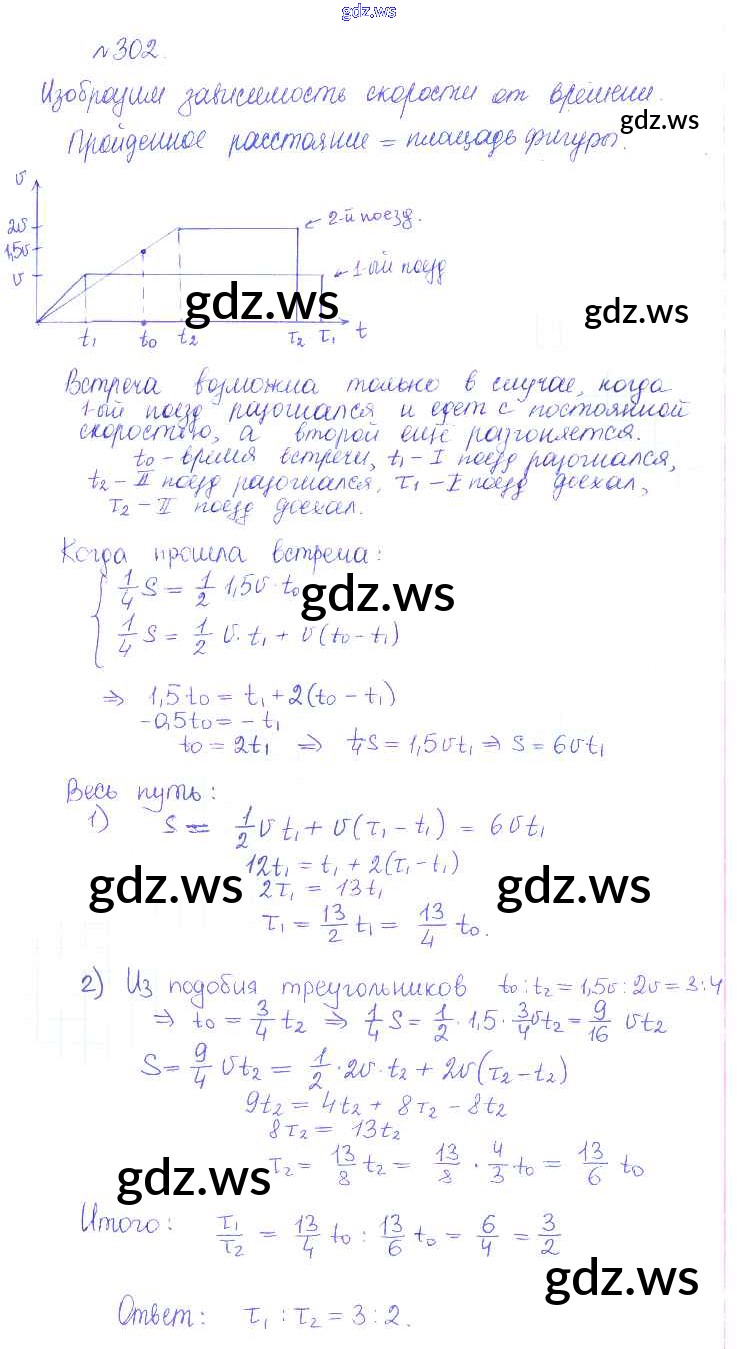 gdz.ws
№302.
Изобразим зависимость скорости от времени.
gdz.ws
Пройденное расстояние = площадь фигуры.
v
2v
1,5v
v
← 2-й поезд.
← 1-ый поезд
gdz.ws
gdz.ws
t₁ t₀ t₂ τ₂ τ₁ t
Встреча возможна только в случае, когда
1-ый поезд разогнался и едет с постоянной
скоростью, а второй ещё разгоняется.
t₀ - время встречи, t₁ - I поезд разогнался,
t₂ - II поезд разогнался, τ₁ - I поезд доехал,
τ₂ - II поезд доехал.
Когда прошла встреча:
1/4 S = 1/2 1,5v · t₀
gdz.ws
1/4 S = 1/2 v · t₁ + v(t₀ - t₁)
⇒ 1,5t₀ = t₁ + 2(t₀ - t₁)
-0,5t₀ = - t₁
t₀ = 2t₁ ⇒ 1/4 S = 1,5vt₁ ⇒ S = 6vt₁
Весь путь:
1) S = 1/2 v t₁ + v(τ₁ - t₁) = 6vt₁
12t₁ = t₁ + 2(τ₁ - t₁)
gdz.ws
gdz.ws
2τ₁ = 13t₁
τ₁ = 13/2 t₁ = 13/4 t₀.
2) Из подобия треугольников t₀ : t₂ = 1,5v : 2v = 3:4
⇒ t₀ = 3/4 t₂ ⇒ 1/4 S = 1/2 · 1,5 · 3/4 vt₂ = 9/16 vt₂
S = 9/4 vt₂ = 1/2 · 2v · t₂ + 2v(τ₂ - t₂)
9t₂ = 4t₂ + 8τ₂ - 8t₂
8τ₂ = 13t₂
τ₂ = 13/8 t₂ = 13/8 · 4/3 t₀ = 13/6 t₀
gdz.ws
Итого: τ₁/τ₂ = 13/4 t₀ : 13/6 t₀ = 6/4 = 3/2
gdz.ws
Ответ: τ₁ : τ₂ = 3 : 2.